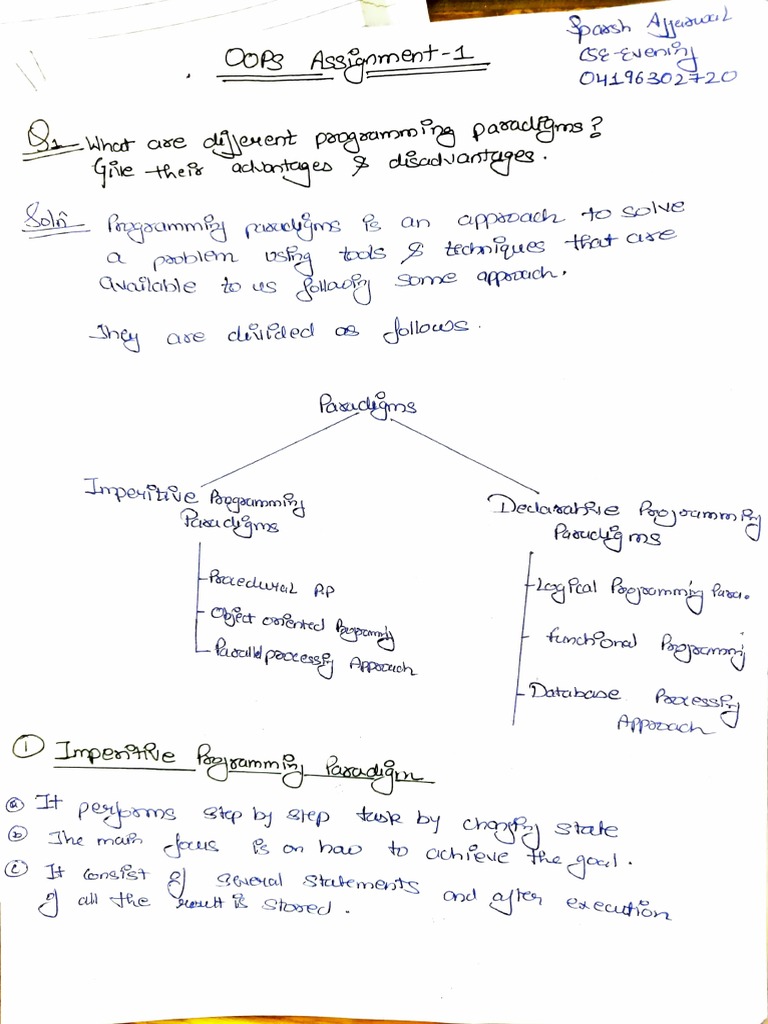 Sparsh Aggarwal
CSE-Evening
04196302720
OOPS Assignment-1
Q1 What are different programming paradigms?
Give their advantages & disadvantages.
Soln Programming paradigms is an approach to solve
a problem using tools & techniques that are
available to us following some approach.
They are divided as follows.
Paradigms
Imperitive Programming
Paradigms
Declarative Programming
Paradigms
Procedural P.P
Object oriented Programming
Parallel processing Approach
Logical Programming Para.
functional Programming
Database Processing
Approach
① Imperitive Programming Paradigm
ⓐ It performs step by step task by changing state
ⓑ The main focus is on how to achieve the goal.
ⓒ It consist of several statements and after execution
of all the result is stored.